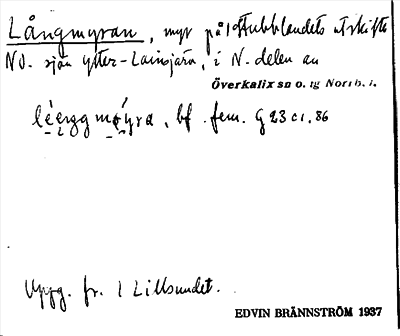 Långmyran, myr på Stubblandets utskifte
NO. sjön Ytter-Lainsjärv, i N. delen av
Överkalix sn o. tg Norrb. l.
myra, bf. fem. G 23 c1. 86
Uppg. fr. 1 Lillsundet.
EDVIN BRÄNNSTRÖM 1937